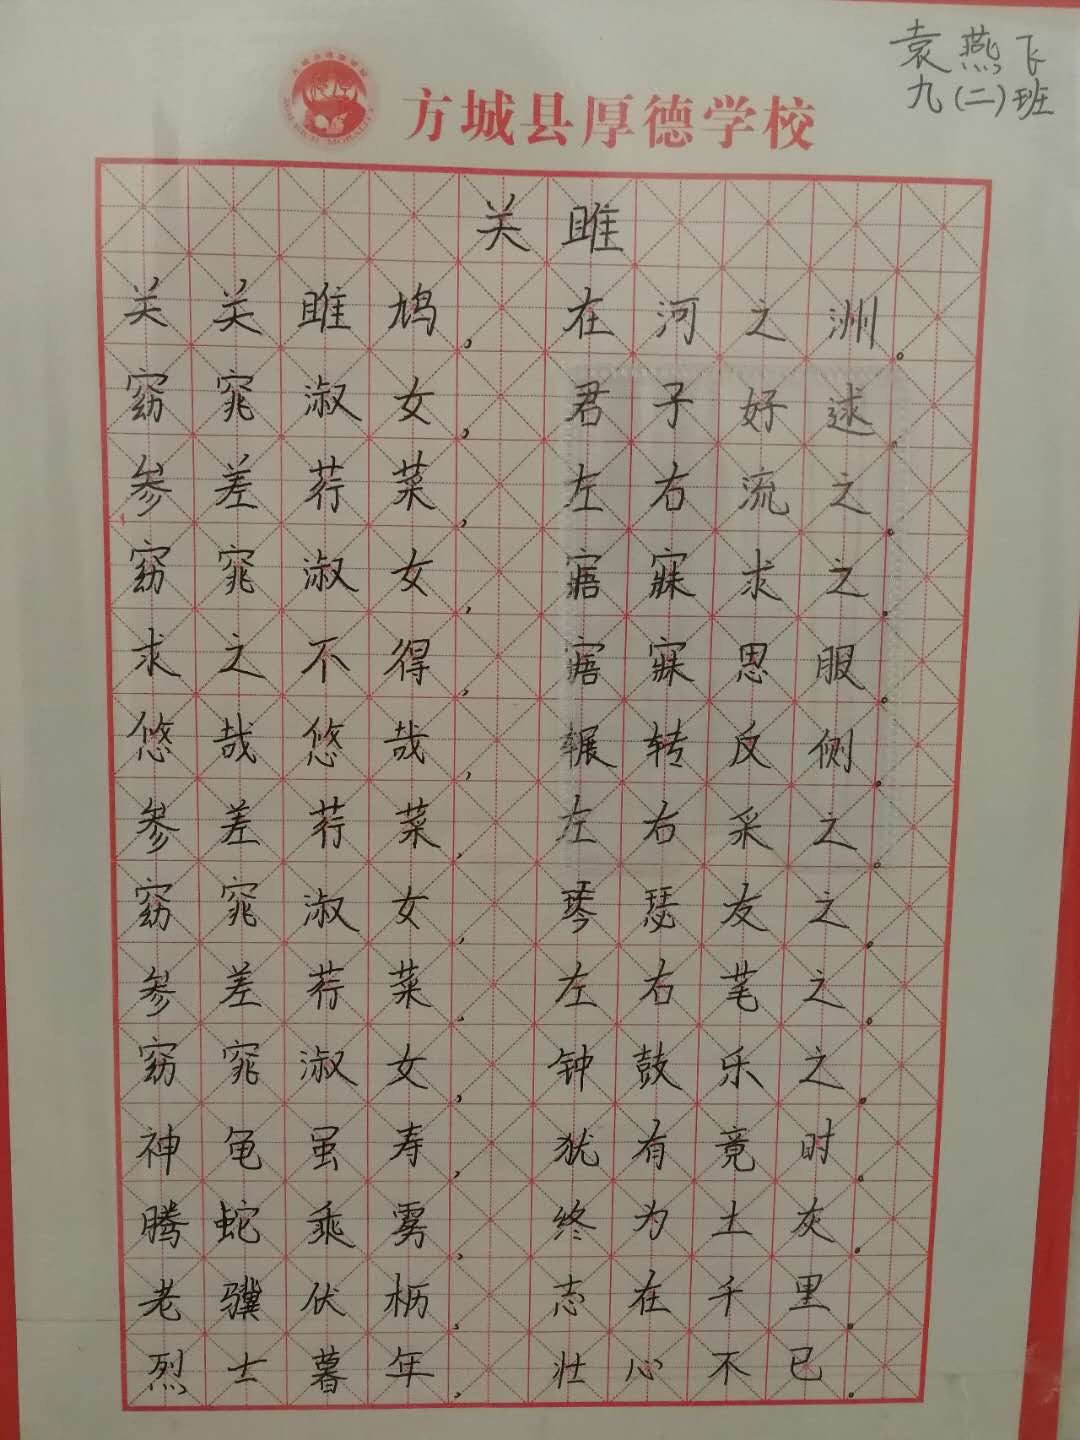 袁燕飞
九(二)班
方城县厚德学校
关雎
关关雎鸠，在河之洲。
窈窕淑女，君子好逑。
参差荇菜，左右流之。
窈窕淑女，寤寐求之。
求之不得，寤寐思服。
悠哉悠哉，辗转反侧。
参差荇菜，左右采之。
窈窕淑女，琴瑟友之。
参差荇菜，左右芼之。
窈窕淑女，钟鼓乐之。
神龟虽寿，犹有竟时。
腾蛇乘雾，终为土灰。
老骥伏枥，志在千里。
烈士暮年，壮心不已。